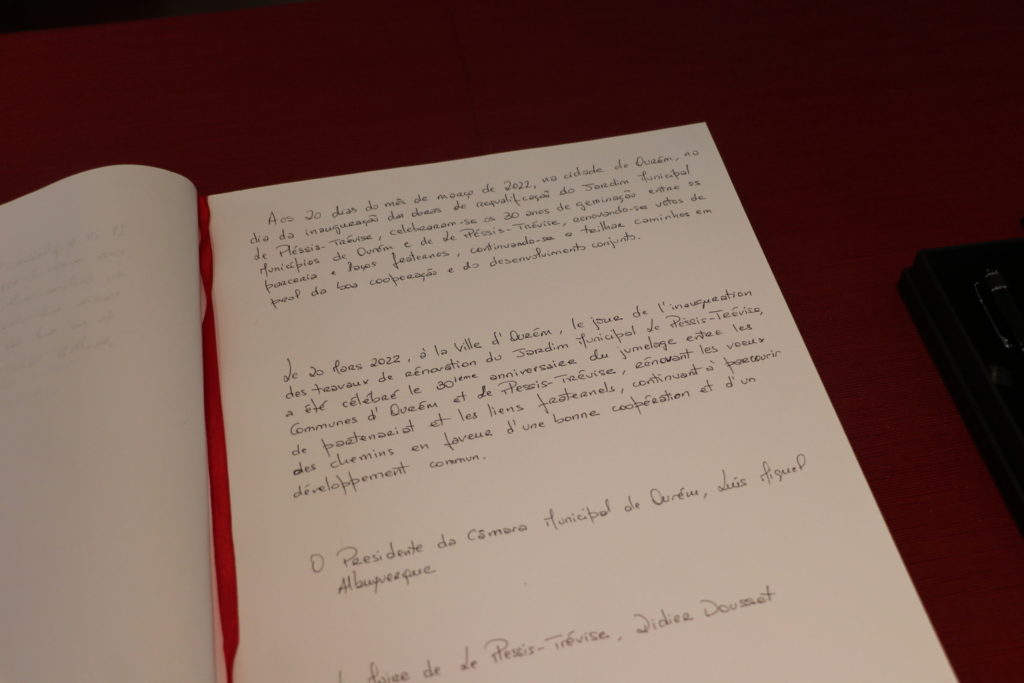 Aos 20 dias do mês de março de 2022, na cidade de Ourém, no
dia da inauguração das obras de requalificação do Jardim Municipal
de Pléssis-Trévise, celebraram-se os 30 anos de geminação entre os
Municípios de Ourém e de Le Pléssis-Trévise, renovando-se votos de
parceria e laços fraternos, continuando-se a trilhar caminhos em
prol da boa cooperação e do desenvolvimento conjunto.
Le 20 Mars 2022, à la Ville d'Ourém, le jour de l'inauguration
des travaux de rénovation du Jardim Municipal Le Pléssis-Trévise,
a été célébré le 30ieme anniversaire du jumelage entre les
Communes d'Ourém et Le Plessis-Trévise, rénovant les voeux
de partenariat et les liens fraternels, continuant à parcourir
des chemins en faveur d'une bonne coopération et d'un
développement commun.
O Presidente da Câmara Municipal de Ourém, Luís Miguel
Albuquerque
Le Maire de Le Plessis-Trévise, Didier Dousset